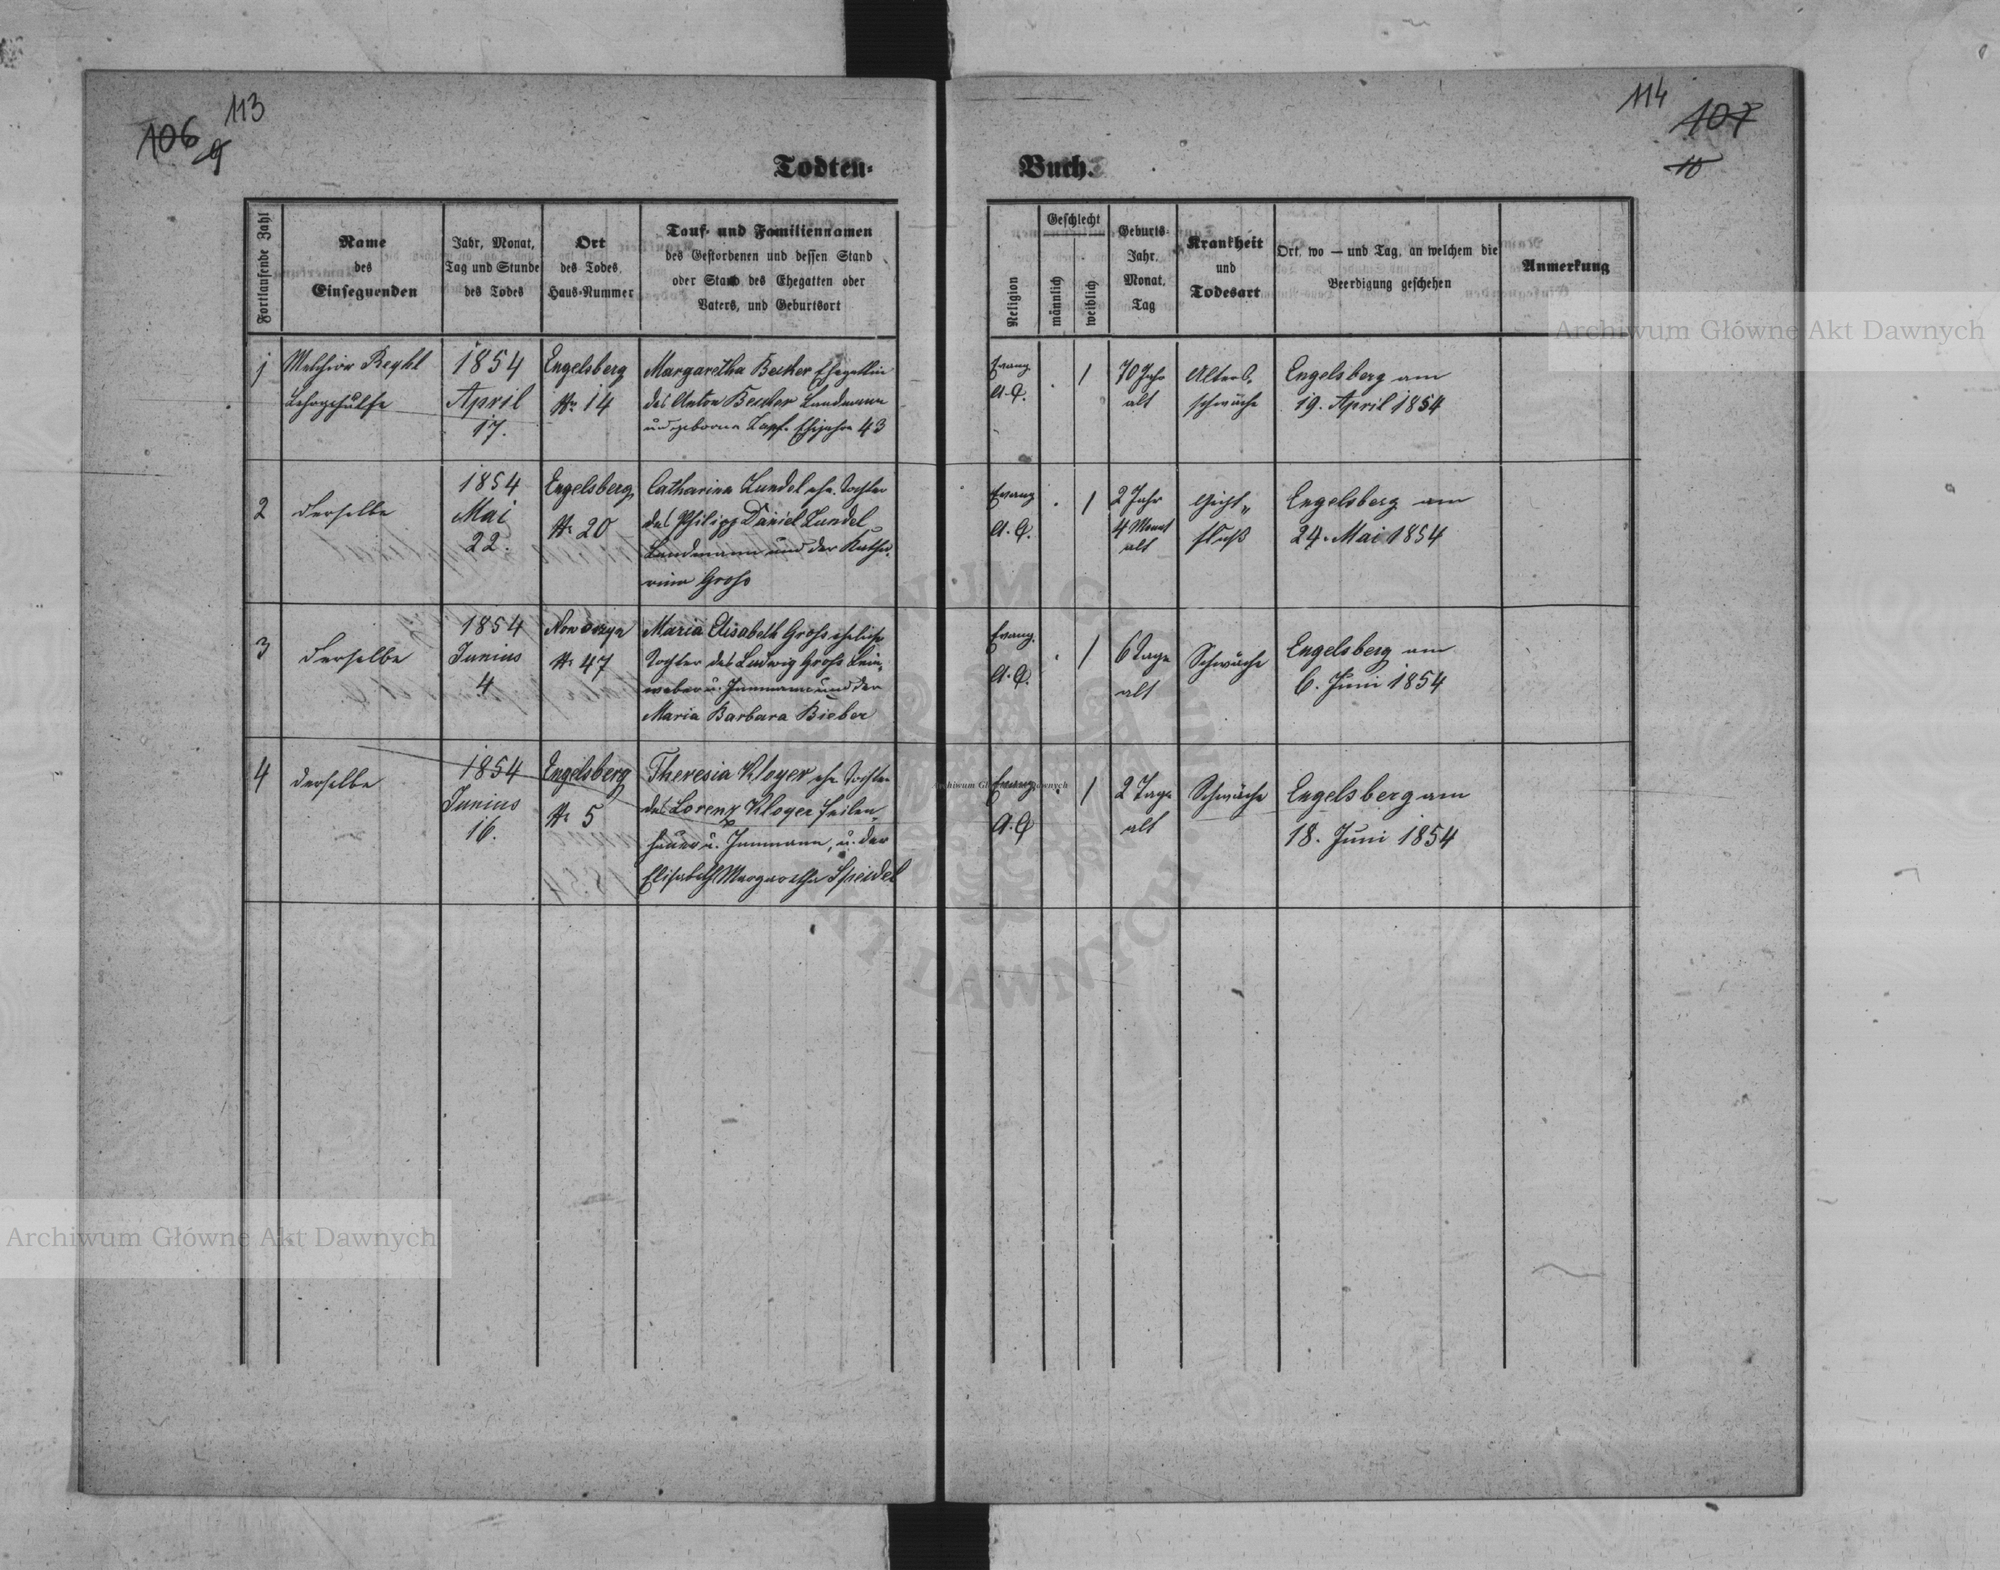 113
106
9
114
107
10
Todten-Buch.
Fortlaufende Zahl
Name
des
Einsegnenden
Jahr, Monat,
Tag und Stunde
des Todes
Ort
des Todes,
Haus-Nummer
Tauf- und Familiennamen
des Gestorbenen und dessen Stand
oder Stand des Ehegatten oder
Vaters, und Geburtsort
Religion
Geschlecht
männlich
weiblich
Geburts-
Jahr,
Monat,
Tag
Krankheit
und
Todesart
Ort, wo — und Tag, an welchem die
Beerdigung geschehen
Anmerkung
1
Melchior
Lehrgehülfe
1854
April
17.
Engelsberg
Nr. 14
Margaretha Becker Ehegattin
des Anton Becker Landmann
und geborene Zapf. Ehejahre 43
Evang.
A. C.
1
70 Jahr
alt
Alters-
schwäche
Engelsberg am
19. April 1854
2
Derselbe
1854
Mai
22.
Engelsberg
Nr. 20
Catharina Lundel ehe. Tochter
des Philipp Daniel Lundel
Landmann und der Katha-
rina Groß
Evang
A. C.
1
2 Jahr
4 Monat
alt
Gicht-
fluß
Engelsberg am
24. Mai 1854
3
Derselbe
1854
Junius
4
Nr. 47
Maria Elisabeth Groß eheliche
Tochter des Ludwig Groß Lein-
weber u. Inmann und der
Maria Barbara Bieber
Evang.
A. C.
1
6 Tage
alt
Schwäche
Engelsberg am
6. Juni 1854
4
Derselbe
1854
Junius
16.
Engelsberg
Nr. 5
Theresia Kloyer ehe. Tochter
des Lorenz Kloyer Feilen-
hauer u. Inmann, u. der
Elisabeth Margaretha Speidel
Evang.
A. C
1
2 Tage
alt
Schwäche
Engelsberg am
18. Juni 1854
Archiwum Główne Akt Dawnych
Archiwum Główne Akt Dawnych
Archiwum Główne Akt Dawnych